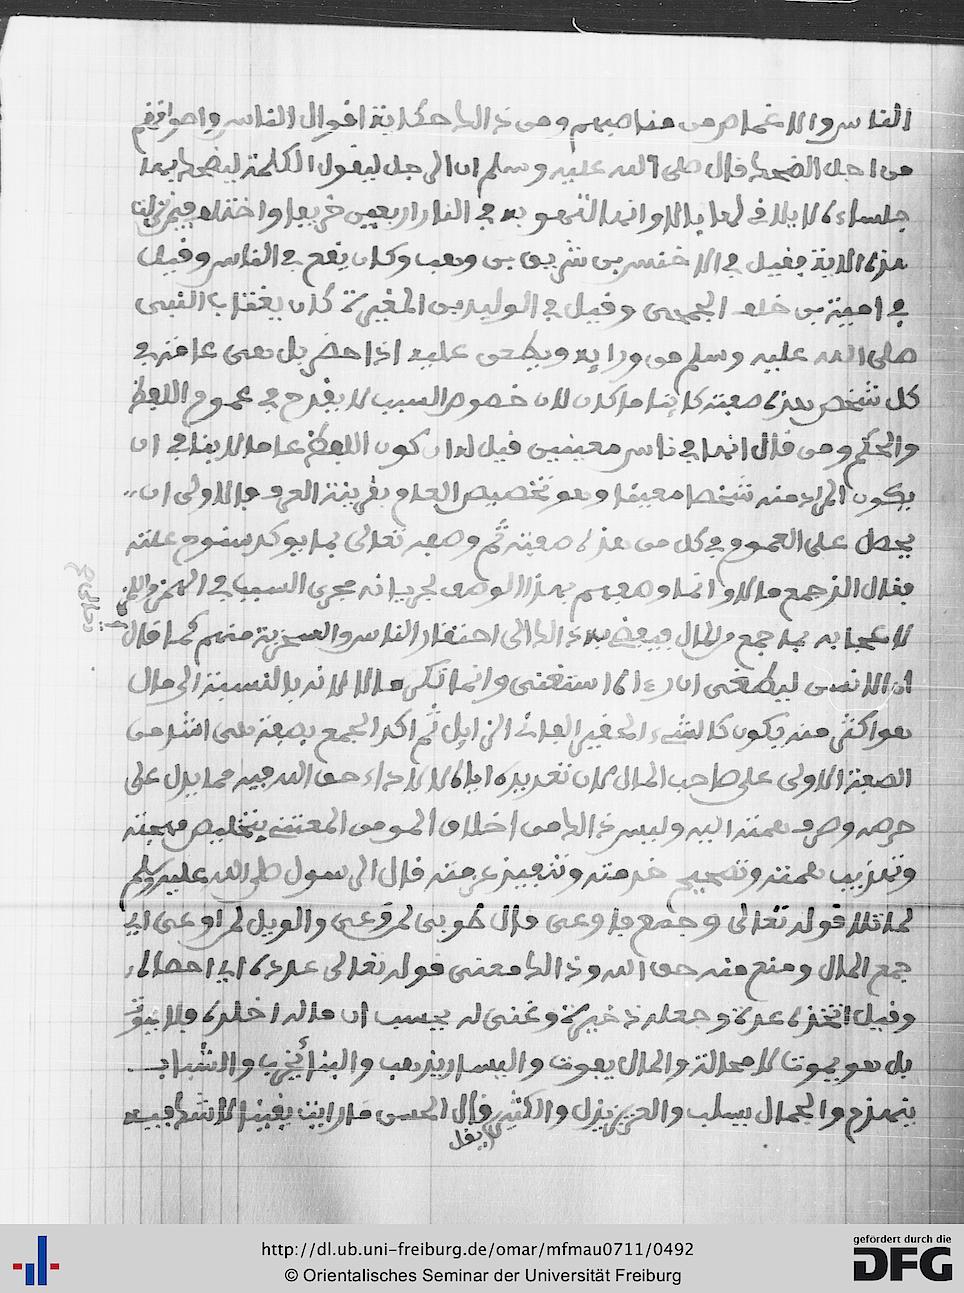 الناس والاغماص من مناصبهم ومن ذالك حكاية افوال الناس واصواتهم
من اجل الضحك فال صلى الله عليه وسلم ان الرجل ليفول الكلمة ليضحك بها
جلساءه لا يلافى لها بالا وانها لتهوي به في النار اربعين خريفا واختلف فيم نزلت
هذه الاية ففيل في الاخنس بن شريق بن وهب وكان يفع في الناس وفيل
في امية بن خلف الجمحي وفيل في الوليد بن المغيرة كان يغتاب النبي
صلى الله عليه وسلم من ورايه ويطعن عليه اذا حضر بل هي عامة في
كل شخص هذه صفته كاينا ما كان لان خصوص السبب لا يفدح في عموم اللفظ
والحكم ومن فال انها في ناس معينين فيل له ان كون اللفظ عاما لا ينافي ان
يكون المراد منه شخصا معينا وهو تخصيص العام بفرينة العرف والاولى ان
يحمل على العموم في كل من هذه صفته ثم وصفه تعالى بما يوكد سوء علته
بفال الذي جمع مالا وانما وصفهم بهذا الوصف لجريانه مجرى السبب في الهمز واللمز
لاعجابه بما جمع من المال فيفضي به ذالك الى احتفار الناس والسخرية منهم كما فال تعالى
ان الانسن ليطغى ان رءاه استغنى وانما نكر مالا لانه بالنسبة الى مال
هو اكثر منه يكون كالشيء الحفير الفاني الزايل ثم اكد الجمع بصفة هي اشد من
الصفة الاولى على صاحب المال لان تعديده اياه لا لاداء حق الله فيه مما يدل على
حرصه وصرف همته اليه وليس ذالك من اخلاق المومن المعتني بتخليص مهجته
وتهذيب همته وتصحيح خدمته وتنجيز عزمته فال الرسول صلى الله عليه وسلم
لما تلا فوله تعالى وجمع فاوعى فال طوبى لمن وعى والويل لمن اوعى اي
جمع المال ومنع منه حق الله وذالك معنى فوله تعالى عدده اي احصاه
وفيل اتخذه عدة وجعله ذخيرة وغنى له يحسب ان ماله اخلده فلا يموت
بل هو يموت لا محالة والمال يفوت واليسار يذهب والبنا يخرب والشباب
ينهزم والجمال يسلب والعزيز يزل والكثير يفل فال الحسن ما رايت يفينا لا شك فيه